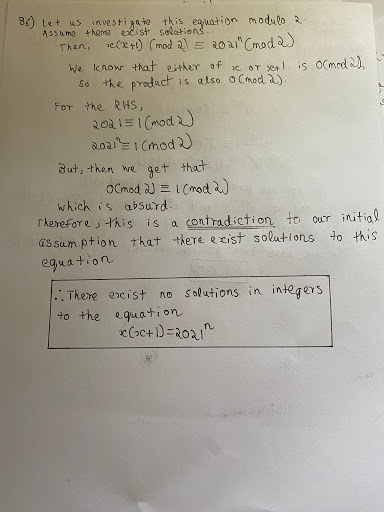 B6) Let us investigate this equation modulo 2.
Assume there exist solutions.
Then, x(x+1) (mod 2) ≡ 2021ⁿ (mod 2)
We know that either of x or x+1 is 0(mod 2),
so the product is also 0(mod 2).
For the RHS,
2021 ≡ 1 (mod 2)
2021ⁿ ≡ 1 (mod 2)
But, then we get that
0(mod 2) ≡ 1 (mod 2)
which is absurd.
Therefore, this is a contradiction to our initial
assumption that there exist solutions to this
equation
∴ There exist no solutions in integers
to the equation
x(x+1)=2021ⁿ